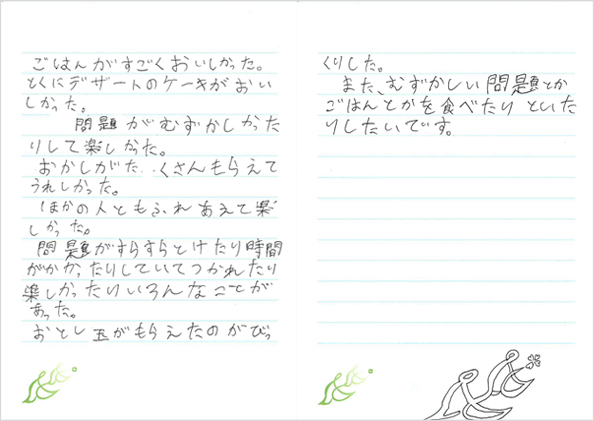 ごはんがすごくおいしかった。
とくにデザートのケーキがおい
しかった。
問題がむずかしかった
りして楽しかった。
おかしがた..くさんもらえて
うれしかった。
ほかの人ともふれあえて楽
しかった。
問題がすらすらとけたり時間
がかかったりしていてつかれたり
楽しかったりいろんなことが
あった。
おとし玉がもらえたのがびっ
くりした。
また、むずかしい問題とか
ごはんとかを食べたりといた
りしたいです。